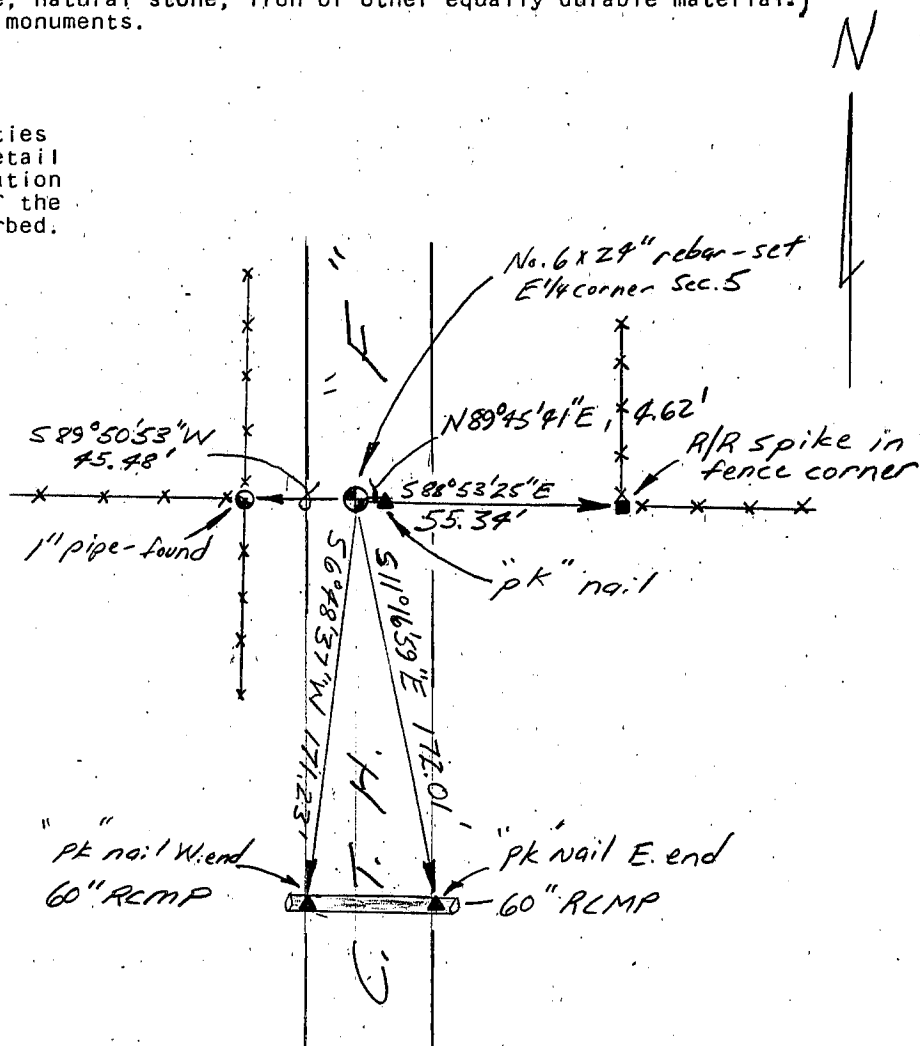 e, natural stone, iron or other equally durable material.)
monuments.
N
ties
etail
ution
f the
rbed.
No. 6 x 24" rebar-set
E 1/4 corner Sec. 5
"F"
S89°50'53"W
45.48'
N89°45'41"E, 4.62'
R/R spike in
fence corner
S88°53'25"E
55.34'
1" pipe-found
"pk" nail
S6°48'37"W 171.23'
S11°16'59"E 172.01'
C. T. H.
"pk" nail W. end
60" RCMP
"pk" nail E. end
60" RCMP